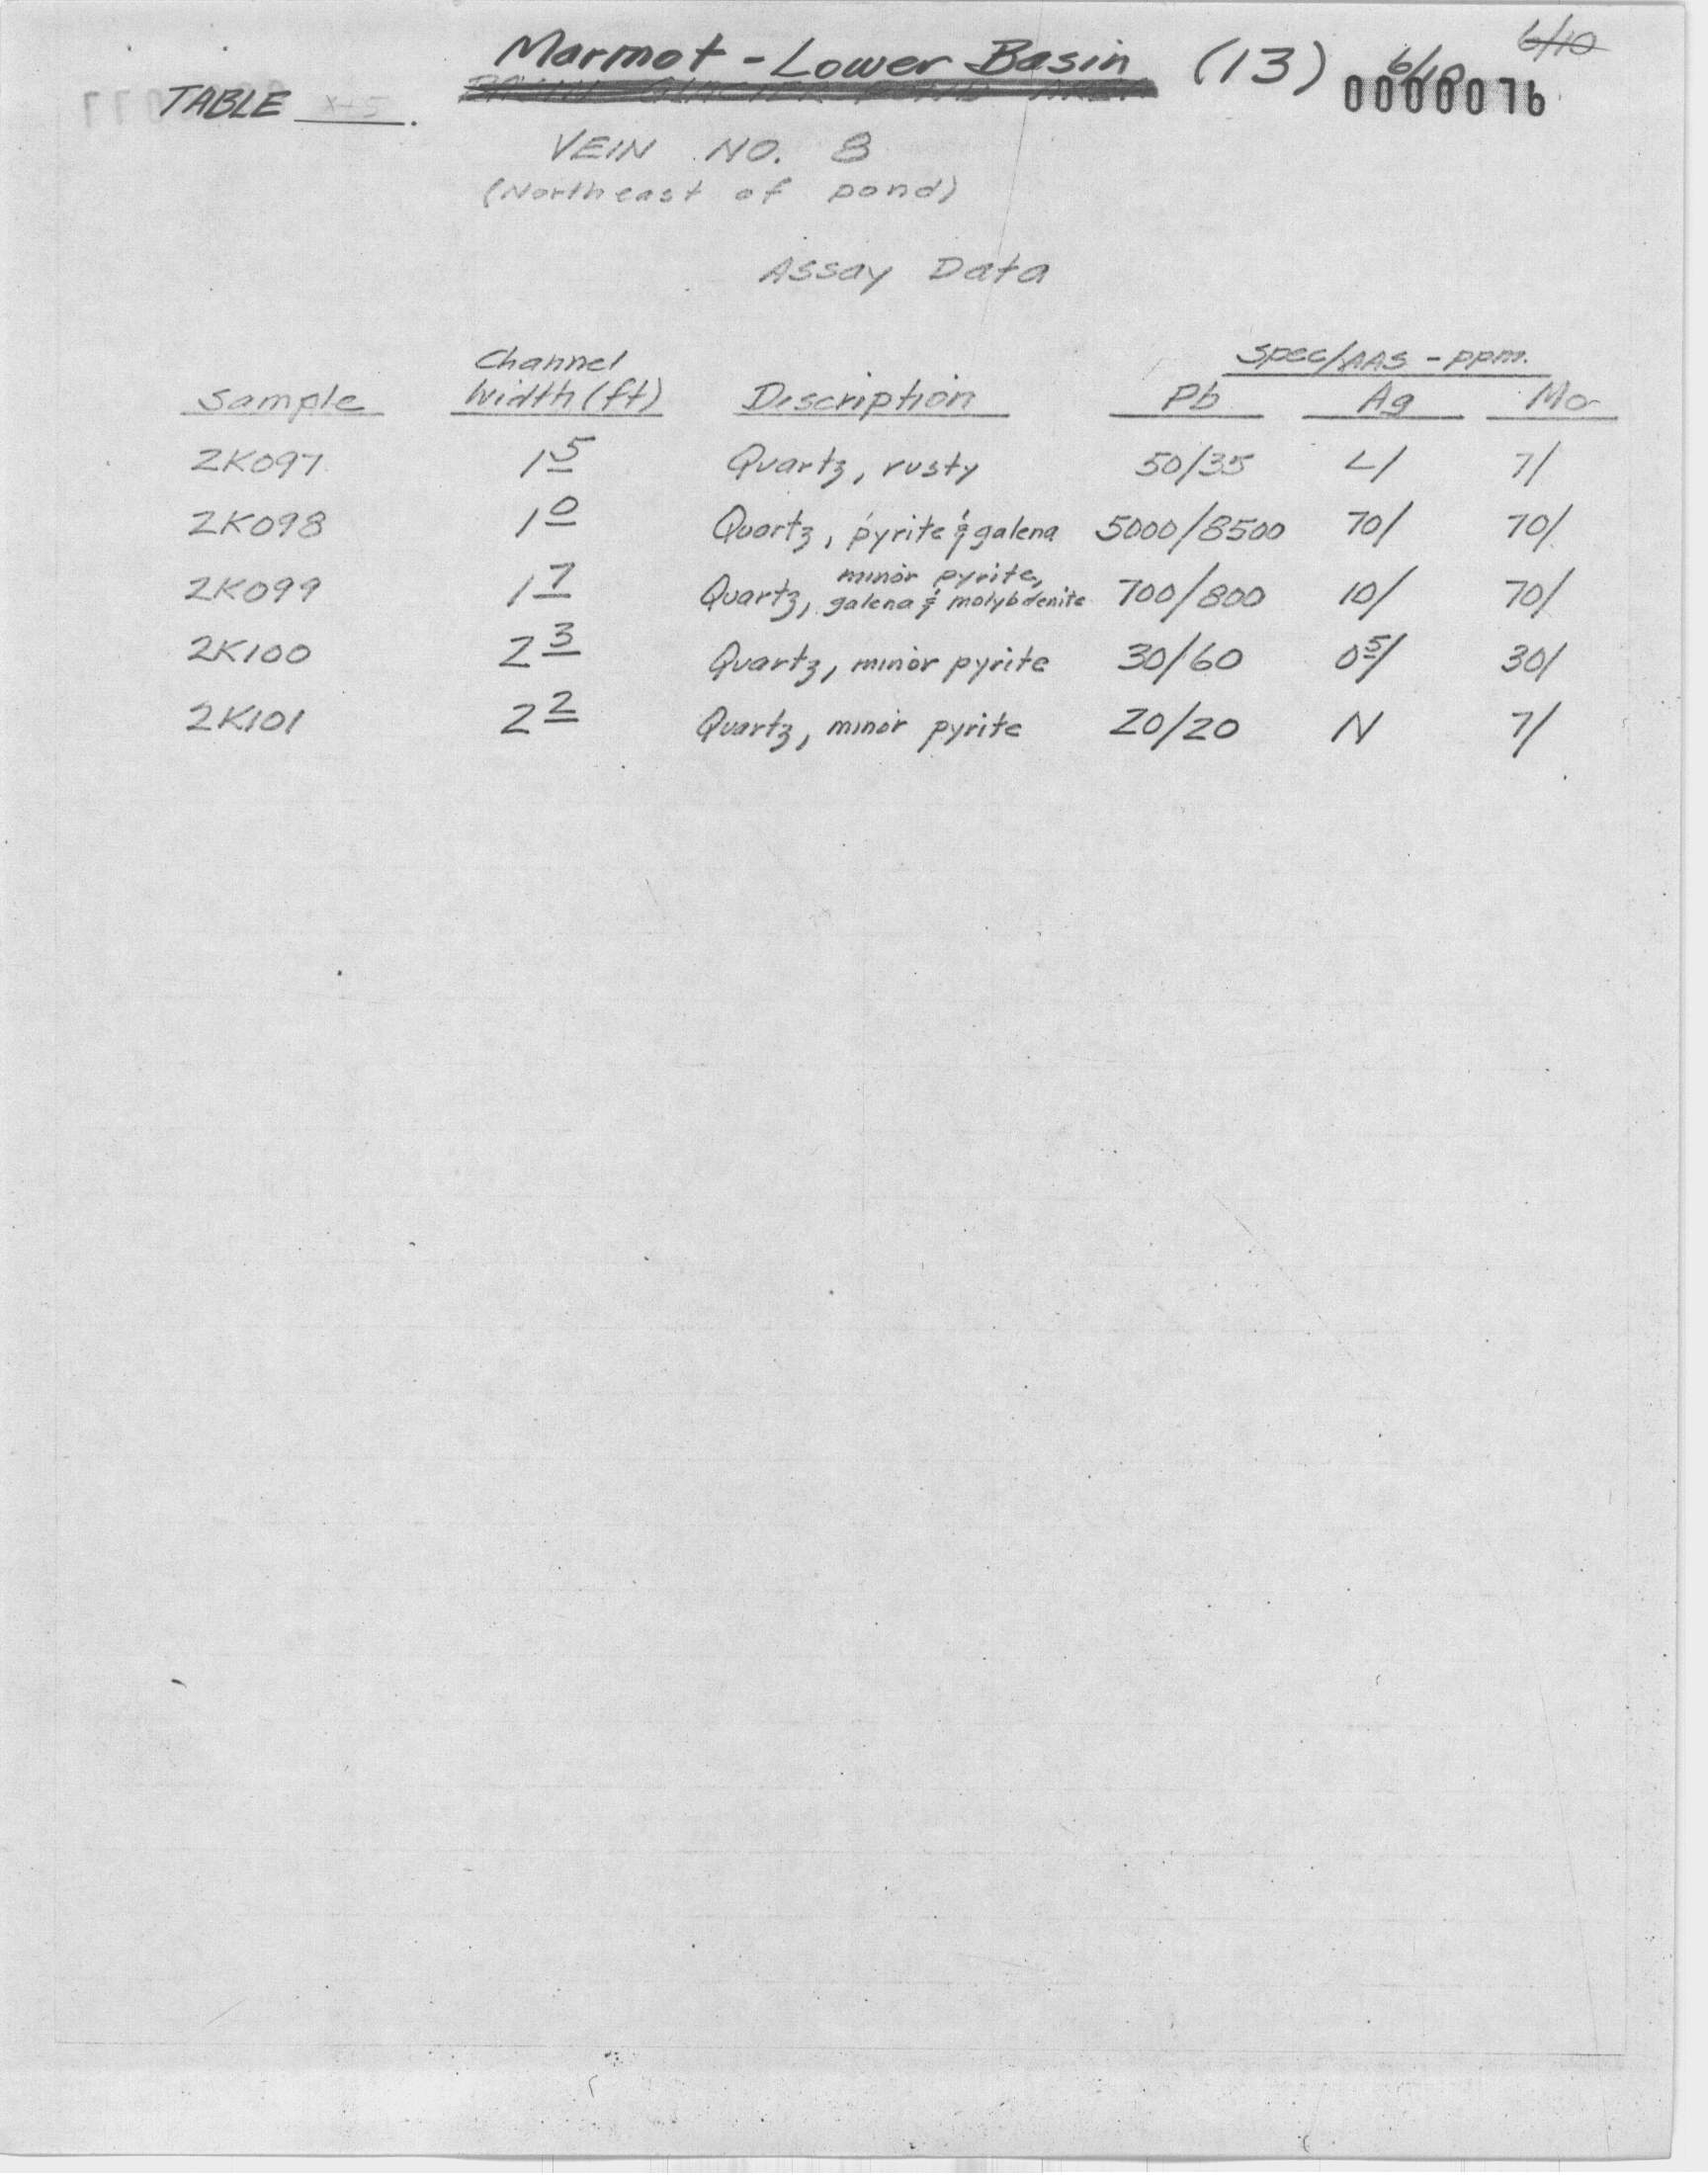 6/10
Marmot - Lower Basin (13) 6/10
TABLE ____. 0000076
VEIN NO. 8
(Northeast of pond)
Assay Data
Channel Spec/AAS - ppm.
Sample Width (ft) Description Pb Ag Mo
2K097 1 5 Quartz, rusty 50/35 L/ 7/
2K098 1 0 Quartz, pyrite & galena 5000/8500 70/ 70/
minor pyrite,
2K099 1 7 Quartz, galena & molybdenite 700/800 10/ 70/
2K100 2 3 Quartz, minor pyrite 30/60 0 5/ 30/
2K101 2 2 Quartz, minor pyrite 20/20 N 7/